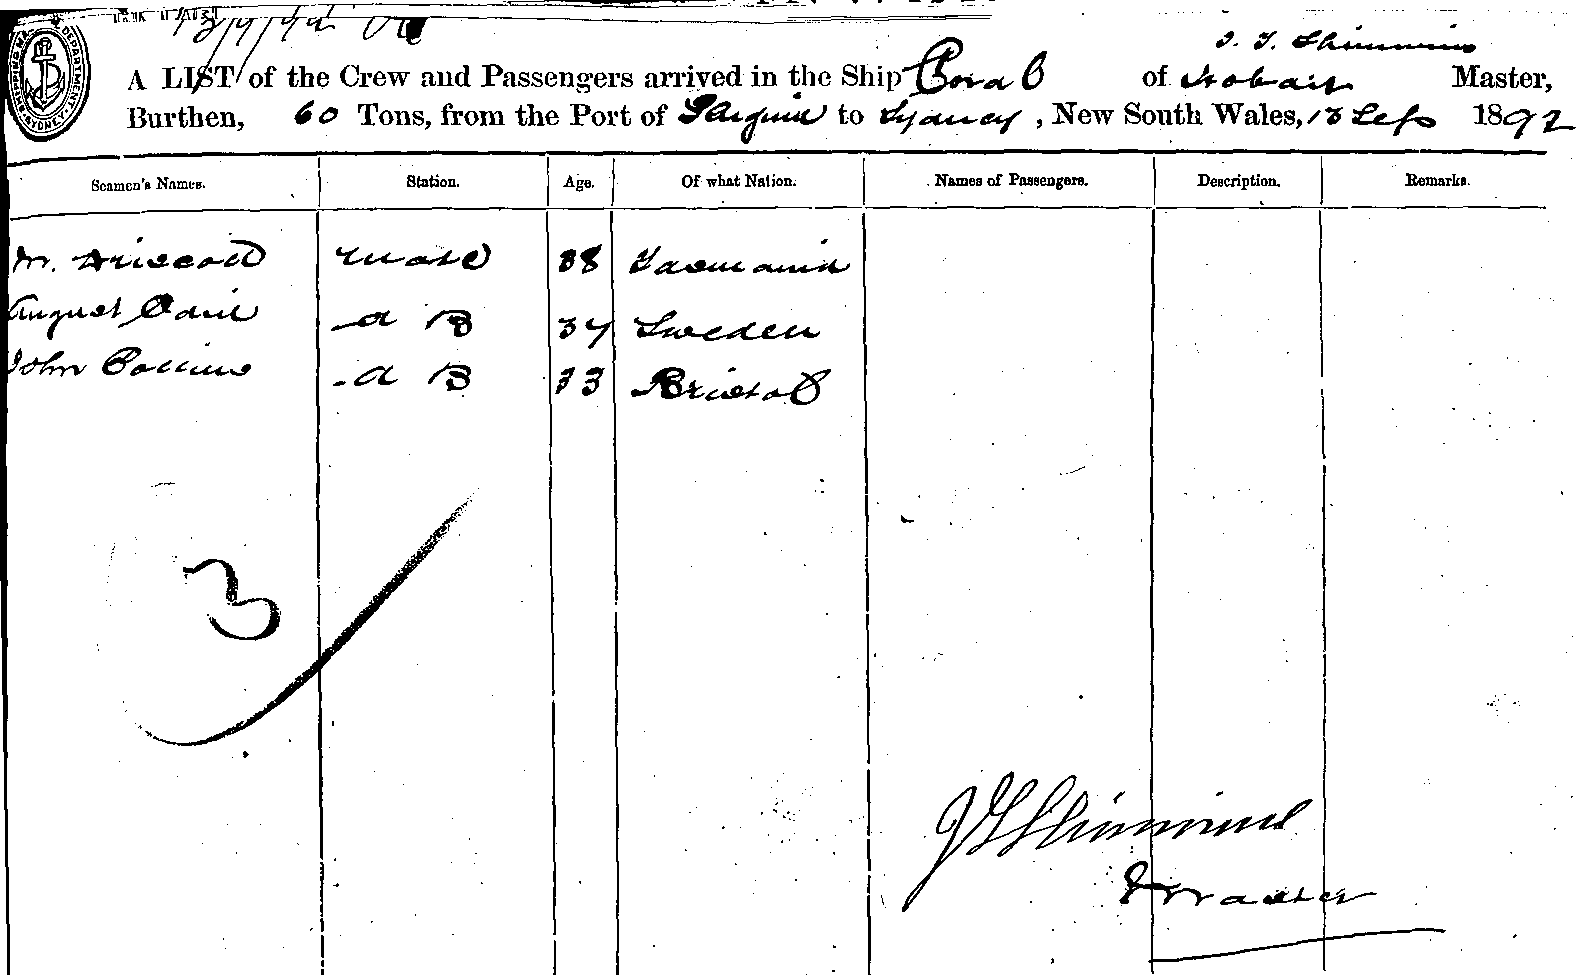 13/9/92
J. T. Shimmins
A LIST of the Crew and Passengers arrived in the Ship Coral of Hobart Master,
Burthen, 60 Tons, from the Port of Penguin to Sydney, New South Wales, 13 Sep 1892
Seamen's Names. Station. Age. Of what Nation. Names of Passengers. Description. Remarks.
M. Driscoll mate 38 Tasmania
August A B 37 Sweden
John Collins A B 33 Bristol
3
J T Shimmins
Master